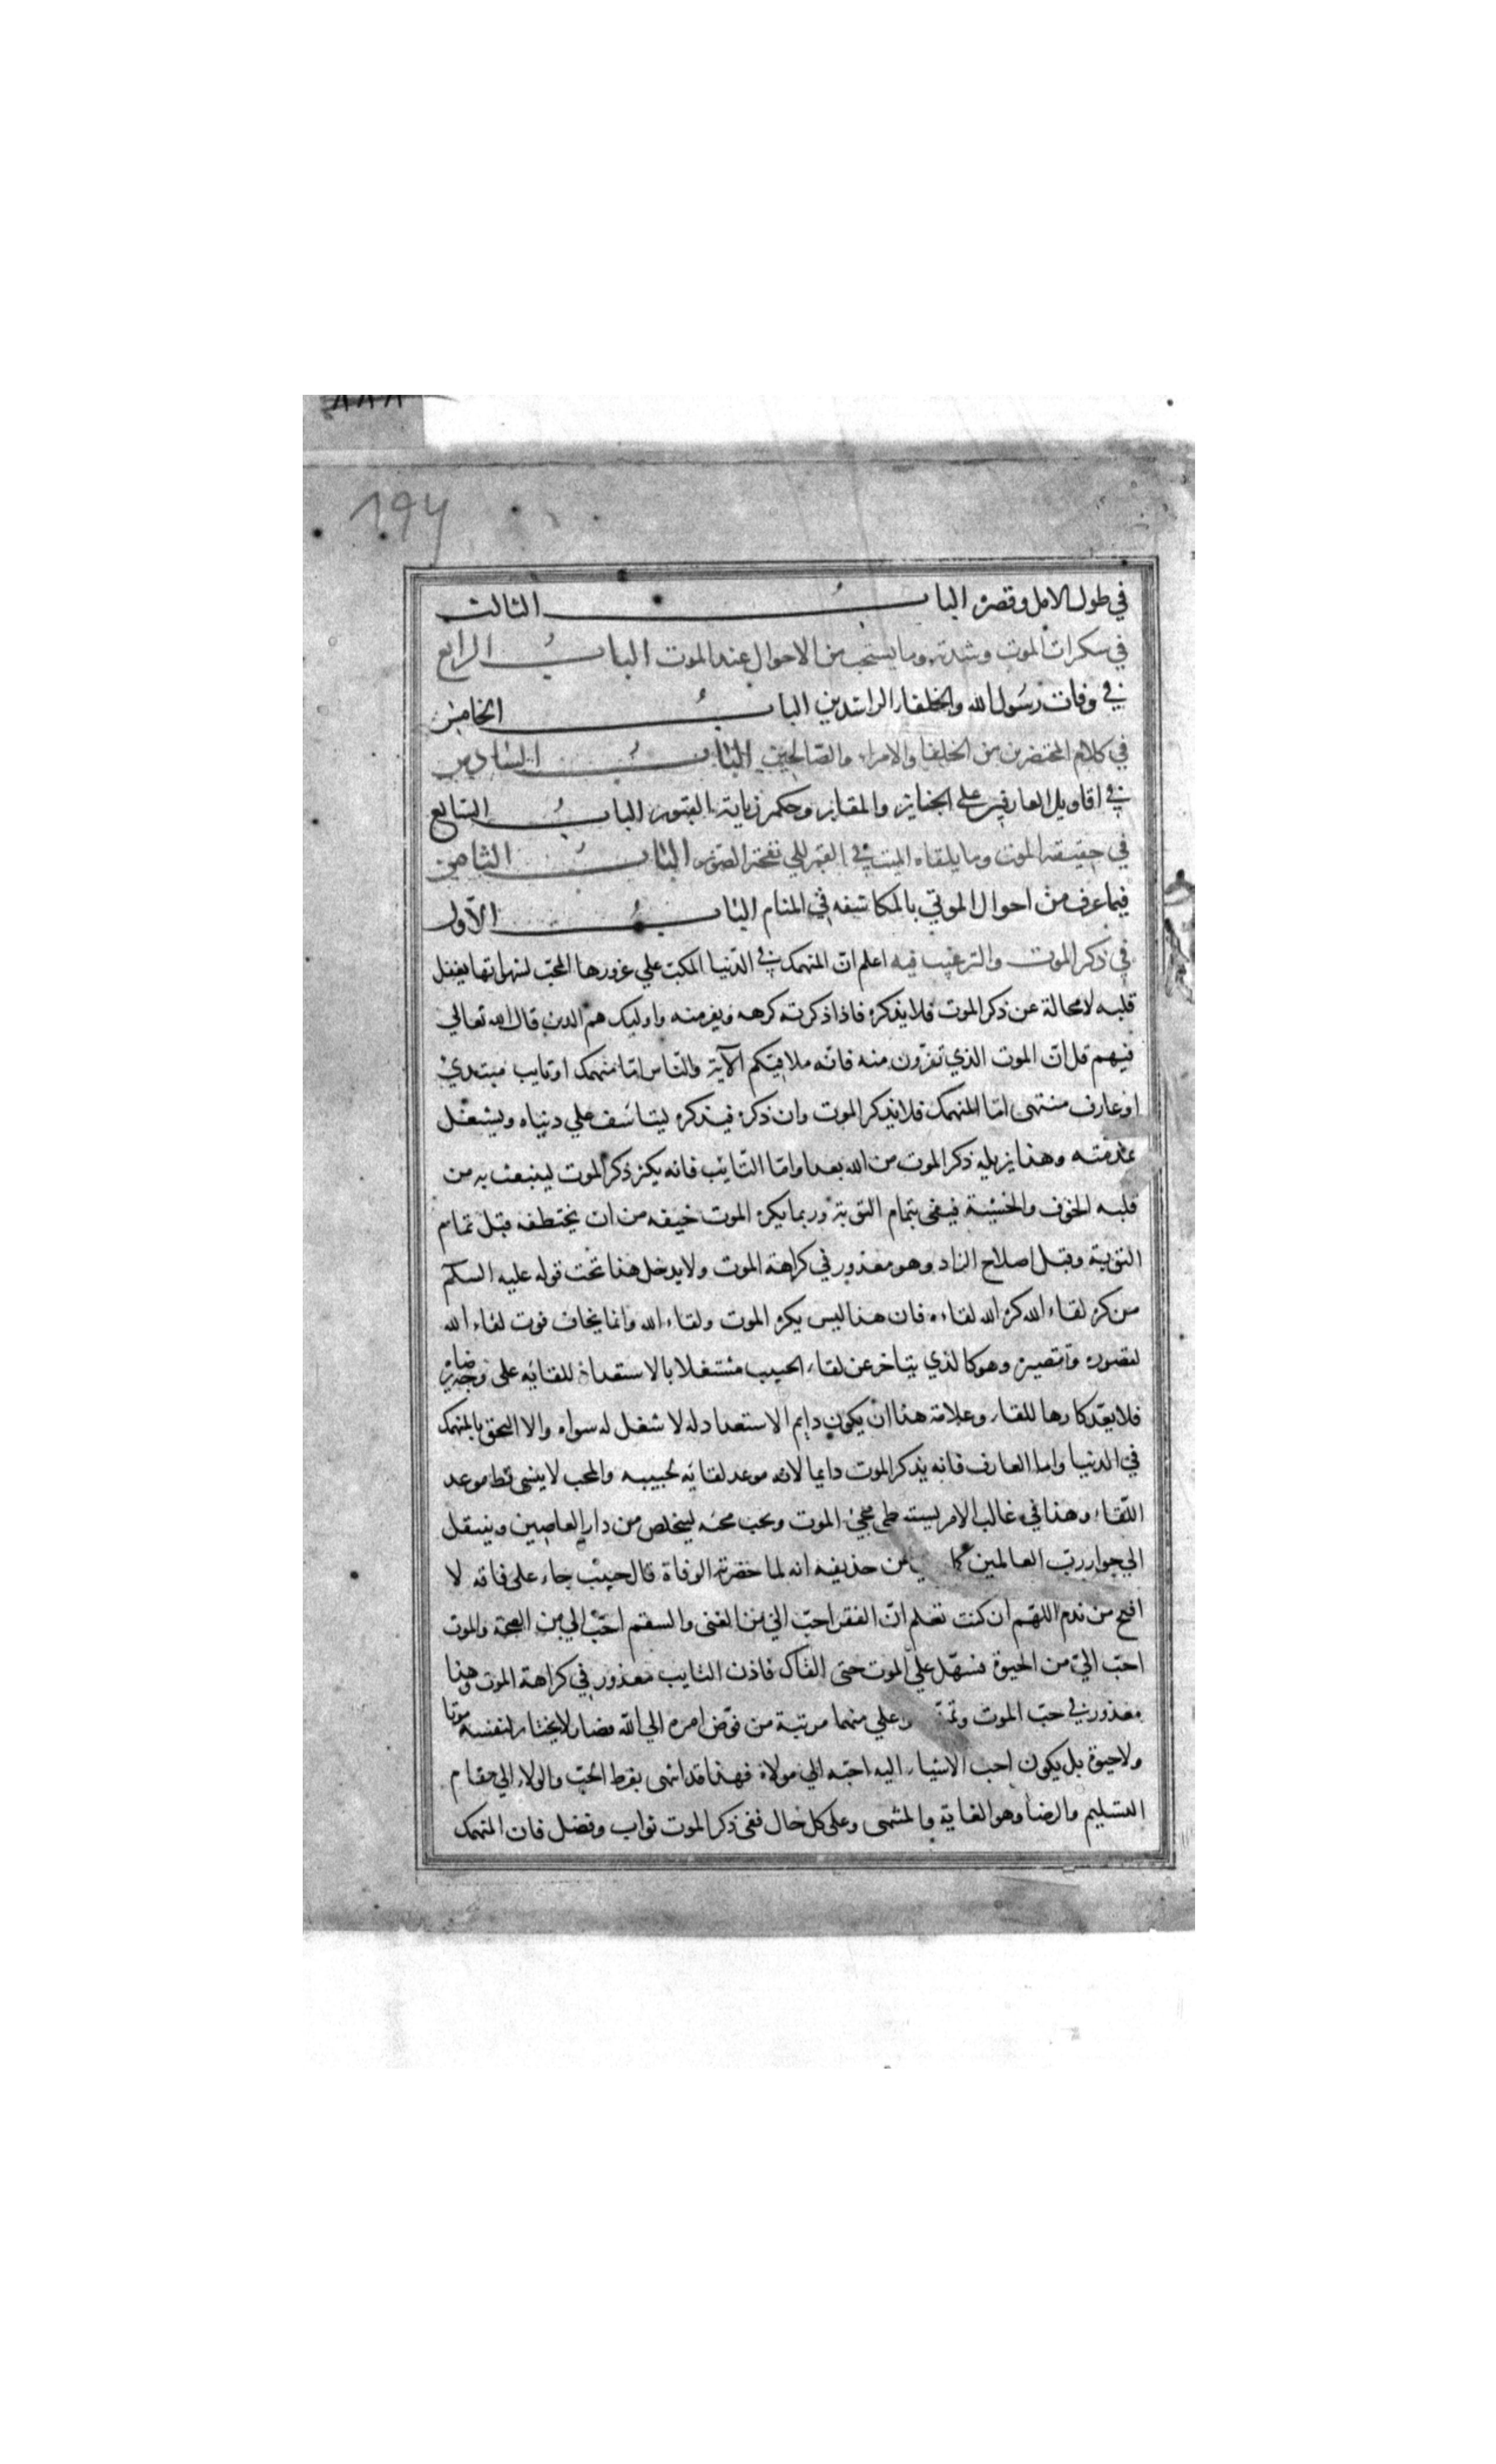 ١٩٧
في طول الامل وقصره الباب الثالث
في سكرات الموت وشدته وما يستحب من الاحوال عند الموت الباب الرابع
في وفات رسول الله والخلفاء الراشدين الباب الخامس
في كلام المحتضرين من الخلفا والامراء والصالحين الباب السادس
في اقاويل العارفين على الجنايز والمقابر وحكم زيارة القبور الباب السابع
في حقيقة الموت وما يلقاه الميت في القبر الي نفخة الصور الباب الثامن
فيما عرف من احوال الموتي بالمكاشفه في المنام الباب الاول
في ذكر الموت والترغيب فيه اعلم ان المنهمك في الدنيا المكب علي غرورها المحب لشهواتها يغفل
قلبه لامحالة عن ذكر الموت فلا يذكره فاذا ذكرته كرهه ويفر منه واوليك هم الذين قال الله تعالي
فيهم قل ان الموت الذي تفرون منه فانه ملاقيكم الآية والناس اما منهمك او تايب مبتدئ
او عارف منتهى اما المنهمك فلا يذكر الموت وان ذكره فيذكره ليتاسف علي دنياه ويشتغل
بمذمته وهذا يزيده ذكر الموت من الله بعدا واما التائب فانه يكثر ذكر الموت لينبعث به من
قلبه الخوف والخشية فيفى بتمام التوبة وربما يكره الموت خيفه من ان يختطفه قبل تمام
التوبة وقبل اصلاح الزاد وهو معذور في كراهة الموت ولا يدخل هذا تحت قوله عليه السلام
من كره لقاء الله كره الله لقاءه فان هذا ليس يكره الموت ولقاء الله وانما يخاف فوت لقاء الله
لقصوره وتقصيره وهو كالذي يتاخر عن لقاء الحبيب مشتغلا بالاستعداد للقائه على وجه يرضاه
فلا يعد كارها للقاء وعلامة هذا ان يكون دايم الاستعداد له لا شغل له سواه والا التحق بالمنهمك
في الدنيا واما العارف فانه يذكر الموت دايما لانه موعد لقائه لحبيبه والمحب لا ينسى قط موعد
اللقاء وهذا في غالب الامر يستبطى مجئ الموت ويحب مجئه ليتخلص من دار العاصين وينتقل
الي جوار رب العالمين كما عن حذيفه انه لما حضرته الوفاة قال حبيب جاء على فاقه لا
افلح من ندم اللهم ان كنت تعلم ان الفقر احب الي من الغنى والسقم احب الي من الصحة والموت
احب الي من الحيوة فسهل علي الموت حتى القاك فاذن التايب معذور في كراهة الموت وهذا
معذور في حب الموت علي منهما مرتبة من فوض امره الي الله فصار لا يختار لنفسه موتا
ولا حيوة بل يكون احب الاشياء اليه احبه الي مولاه فهذا قد انتهى بفرط الحب والولاء الي مقام
التسليم والرضا وهو الغاية والمنتهى وعلى كل حال ففى ذكر الموت ثواب وفضل فان المنهمك